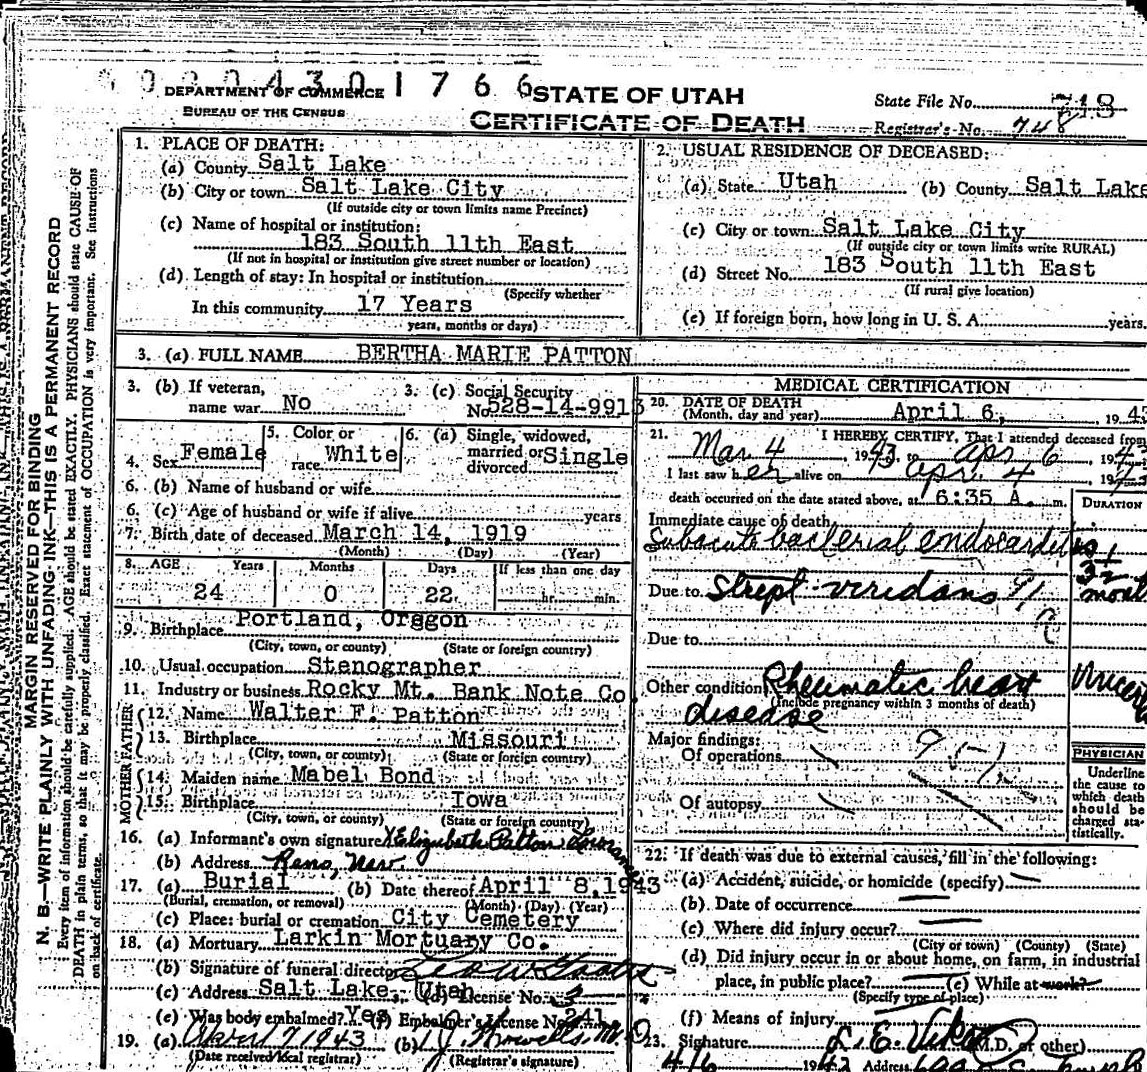 DEPARTMENT OF COMMERCE
BUREAU OF THE CENSUS
STATE OF UTAH
CERTIFICATE OF DEATH
State File No. 718
Registrar's No. 748
MARGIN RESERVED FOR BINDING
N. B.—WRITE PLAINLY WITH UNFADING INK—THIS IS A PERMANENT RECORD
Every item of information should be carefully supplied. AGE should be stated EXACTLY. PHYSICIANS should state CAUSE OF
DEATH in plain terms, so that it may be properly classified. Exact statement of OCCUPATION is very important. See instructions
on back of certificate.
1. PLACE OF DEATH:
(a) County Salt Lake
(b) City or town Salt Lake City
(If outside city or town limits name Precinct)
(c) Name of hospital or institution:
183 South 11th East
(If not in hospital or institution give street number or location)
(d) Length of stay: In hospital or institution
(Specify whether
In this community 17 Years
years, months or days)
2. USUAL RESIDENCE OF DECEASED:
(a) State Utah (b) County Salt Lake
(c) City or town Salt Lake City
(If outside city or town limits write RURAL)
(d) Street No. 183 South 11th East
(If rural give location)
(e) If foreign born, how long in U. S. A. years.
3. (a) FULL NAME BERTHA MARIE PATTON
3. (b) If veteran,
name war No
3. (c) Social Security
No. 528-14-9913
4. Sex Female
5. Color or
race White
6. (a) Single, widowed,
married or
divorced Single
6. (b) Name of husband or wife
6. (c) Age of husband or wife if alive years
7. Birth date of deceased March 14, 1919
(Month) (Day) (Year)
8. AGE Years Months Days If less than one day
24 0 22 hr. min.
9. Birthplace Portland, Oregon
(City, town, or county) (State or foreign country)
10. Usual occupation Stenographer
11. Industry or business Rocky Mt. Bank Note Co
FATHER
12. Name Walter F. Patton
13. Birthplace Missouri
(City, town, or county) (State or foreign country)
MOTHER
14. Maiden name Mabel Bond
15. Birthplace Iowa
(City, town, or county) (State or foreign country)
16. (a) Informant's own signature Elizabeth Patton
(b) Address Reno, Nev.
17. (a) Burial (b) Date thereof April 8, 1943
(Burial, cremation, or removal) (Month) (Day) (Year)
(c) Place: burial or cremation City Cemetery
18. (a) Mortuary Larkin Mortuary Co.
(b) Signature of funeral director
(c) Address Salt Lake, Utah (d) License No. 3
(e) Was body embalmed? Yes (f) Embalmer's License No. 241
19. (a) April 7 1943 (b)
(Date received local registrar) (Registrar's signature)
MEDICAL CERTIFICATION
20. DATE OF DEATH
(Month, day and year) April 6, 194
21. I HEREBY CERTIFY, That I attended deceased from
Mar 4, 1943, to Apr 6, 1943
I last saw her alive on Apr. 4, 1943
death occurred on the date stated above, at 6:35 A. m.
DURATION
Immediate cause of death
Subacute bacterial endocarditis
Due to Strept viridans
Due to
Other condition Rheumatic heart
(Include pregnancy within 3 months of death)
disease
Major findings:
Of operations
Of autopsy
PHYSICIAN
Underline
the cause to
which death
should be
charged sta-
tistically.
22. If death was due to external causes, fill in the following:
(a) Accident, suicide, or homicide (specify)
(b) Date of occurrence
(c) Where did injury occur?
(City or town) (County) (State)
(d) Did injury occur in or about home, on farm, in industrial
place, in public place? (e) While at work?
(Specify type of place)
(f) Means of injury
23. Signature L. E. (M.D. or other)
Address